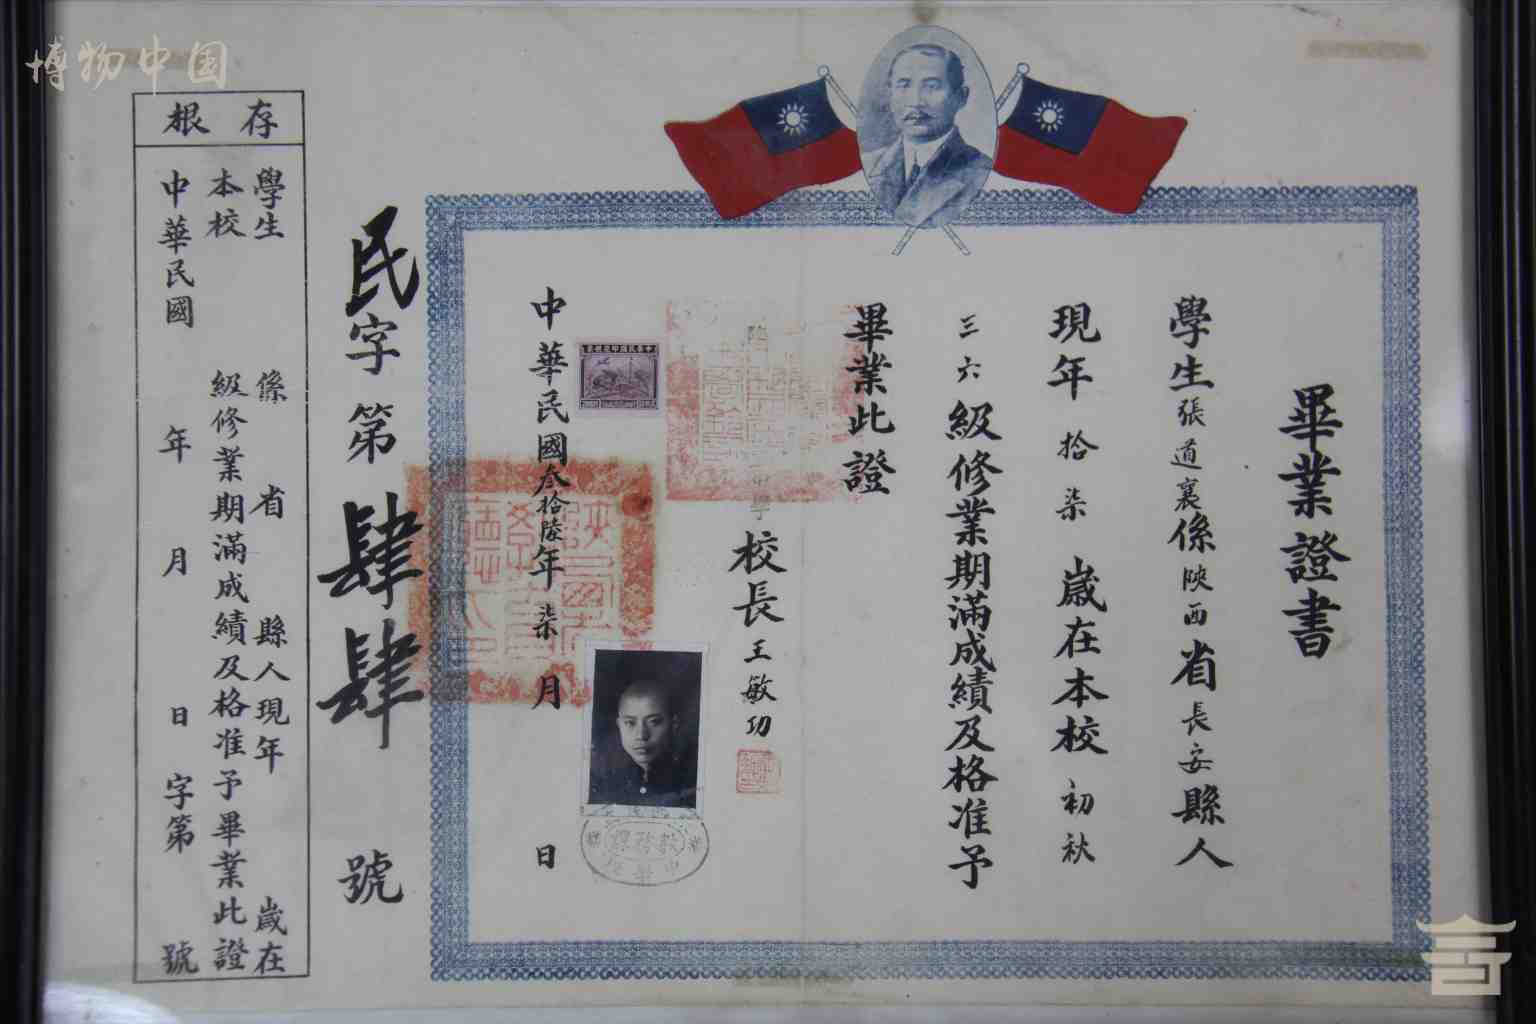 博物中国
畢業證書
學生張道襄係陝西省長安縣人
現年拾柒歲在本校初秋
三六級修業期滿成績及格准予
畢業此證
校長王敏功
中華民國叁拾陸年柒月 日
民字第肆肆號
存根
學生 係 省 縣人現年 歲在
本校 級修業期滿成績及格准予畢業此證
中華民國 年 月 日 字第 號